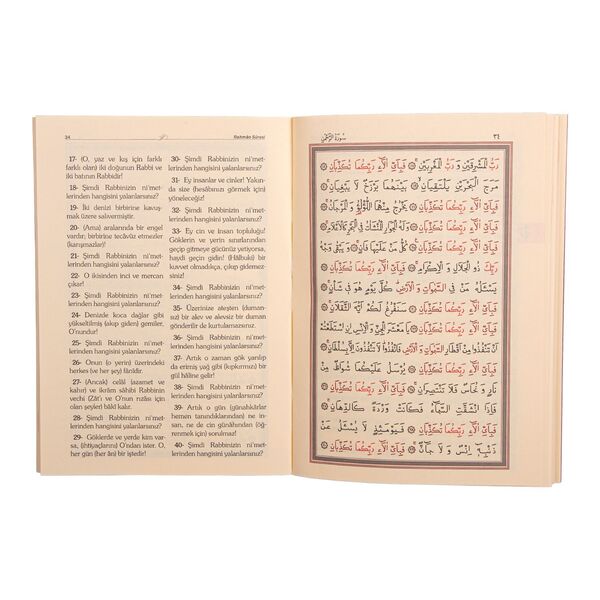 34
Rahmân Sûresi
17- (O, yaz ve kış için farklı
farklı olan) iki doğunun Rabbi ve
iki batının Rabbidir!
18- Şimdi Rabbinizin ni'met-
lerinden hangisini yalanlarsınız?
19- İki denizi birbirine kavuş-
mak üzere salıvermiştir.
20- (Ama) aralarında bir engel
vardır; birbirine tecâvüz etmezler
(karışmazlar)!
21- Şimdi Rabbinizin ni'met-
lerinden hangisini yalanlarsınız?
22- O ikisinden inci ve mercan
çıkar!
23- Şimdi Rabbinizin ni'met-
lerinden hangisini yalanlarsınız?
24- Denizde koca dağlar gibi
yükseltilmiş (akıp giden) gemiler,
O'nundur!
25- Şimdi Rabbinizin ni'met-
lerinden hangisini yalanlarsınız?
26- Onun (o yerin) üzerindeki
herkes (ve şey) fânîdir.
27- (Ancak) celâl (azamet ve
kahır) ve ikrâm sâhibi Rabbinin
vechi (Zât'ı ve O'nun rızâsı için
olan şeyler) bâkî kalır.
28- Şimdi Rabbinizin ni'met-
lerinden hangisini yalanlarsınız?
29- Göklerde ve yerde kim var-
sa, (ihtiyaçlarını) O'ndan ister. O,
her gün (her ân) bir iştedir!
30- Şimdi Rabbinizin ni'met-
lerinden hangisini yalanlarsınız?
31- Ey insanlar ve cinler! Yakın-
da size (hesâbınızı görmek için)
yöneleceğiz!
32- Şimdi Rabbinizin ni'met-
lerinden hangisini yalanlarsınız?
33- Ey cin ve insan topluluğu!
Göklerin ve yerin sınırlarından
geçip gitmeye gücünüz yetiyorsa,
haydi geçin gidin! (Hâlbuki) bir
kuvvet olmadıkça, çıkıp gidemez-
siniz!
34- Şimdi Rabbinizin ni'met-
lerinden hangisini yalanlarsınız?
35- Üzerinize ateşten (duman-
sız) bir alev ve alevsiz bir duman
gönderilir de kurtulamazsınız.
36- Şimdi Rabbinizin ni'met-
lerinden hangisini yalanlarsınız?
37- Artık o zaman gök yarılıp
da erimiş yağ gibi (kıpkırmızı) bir
gül hâline gelir!
38- Şimdi Rabbinizin ni'met-
lerinden hangisini yalanlarsınız?
39- Artık o gün (günahkârlar
hemen tanındıklarından) ne in-
san, ne de cin günâhından (öğ-
renmek için) sorulmaz!
40- Şimdi Rabbinizin ni'met-
lerinden hangisini yalanlarsınız?
سُورَةُ الرَّحْمٰنِ
٣٤
رَبُّ الْمَشْرِقَيْنِ وَ رَبُّ الْمَغْرِبَيْنِ ۞ فَبِاَىِّ اٰلَاۤءِ رَبِّكُمَا تُكَذِّبَانِ ۞
مَرَجَ الْبَحْرَيْنِ يَلْتَقِيَانِ ۞ بَيْنَهُمَا بَرْزَخٌ لَا يَبْغِيَانِ ۞
فَبِاَىِّ اٰلَاۤءِ رَبِّكُمَا تُكَذِّبَانِ ۞ يَخْرُجُ مِنْهُمَا اللُّؤْلُؤُ وَ الْمَرْجَانُ ۞
فَبِاَىِّ اٰلَاۤءِ رَبِّكُمَا تُكَذِّبَانِ ۞ وَلَهُ الْجَوَارِ الْمُنْشَاٰتُ فِى الْبَحْرِ كَالْاَعْلَامِ ۞
فَبِاَىِّ اٰلَاۤءِ رَبِّكُمَا تُكَذِّبَانِ ۞ كُلُّ مَنْ عَلَيْهَا فَانٍ ۞ وَ يَبْقٰى وَجْهُ
رَبِّكَ ذُو الْجَلَالِ وَ الْاِكْرَامِ ۞ فَبِاَىِّ اٰلَاۤءِ رَبِّكُمَا تُكَذِّبَانِ ۞
يَسْئَلُهُ مَنْ فِى السَّمٰوَاتِ وَ الْاَرْضِ كُلَّ يَوْمٍ هُوَ فِى شَاْنٍ ۞
فَبِاَىِّ اٰلَاۤءِ رَبِّكُمَا تُكَذِّبَانِ ۞ سَنَفْرُغُ لَكُمْ اَيُّهَ الثَّقَلَانِ ۞
فَبِاَىِّ اٰلَاۤءِ رَبِّكُمَا تُكَذِّبَانِ ۞ يَا مَعْشَرَ الْجِنِّ وَ الْاِنْسِ اِنِ اسْتَطَعْتُمْ
اَنْ تَنْفُذُوا مِنْ اَقْطَارِ السَّمٰوَاتِ وَ الْاَرْضِ فَانْفُذُوا لَا تَنْفُذُونَ اِلَّا بِسُلْطَانٍ ۞
فَبِاَىِّ اٰلَاۤءِ رَبِّكُمَا تُكَذِّبَانِ ۞ يُرْسَلُ عَلَيْكُمَا شُوَاظٌ مِنْ
نَارٍ وَ نُحَاسٌ فَلَا تَنْتَصِرَانِ ۞ فَبِاَىِّ اٰلَاۤءِ رَبِّكُمَا تُكَذِّبَانِ ۞
فَاِذَا انْشَقَّتِ السَّمَاۤءُ فَكَانَتْ وَرْدَةً كَالدِّهَانِ ۞
فَبِاَىِّ اٰلَاۤءِ رَبِّكُمَا تُكَذِّبَانِ ۞ فَيَوْمَئِذٍ لَا يُسْئَلُ عَنْ
ذَنْبِهِ اِنْسٌ وَ لَا جَاۤنٌّ ۞ فَبِاَىِّ اٰلَاۤءِ رَبِّكُمَا تُكَذِّبَانِ ۞